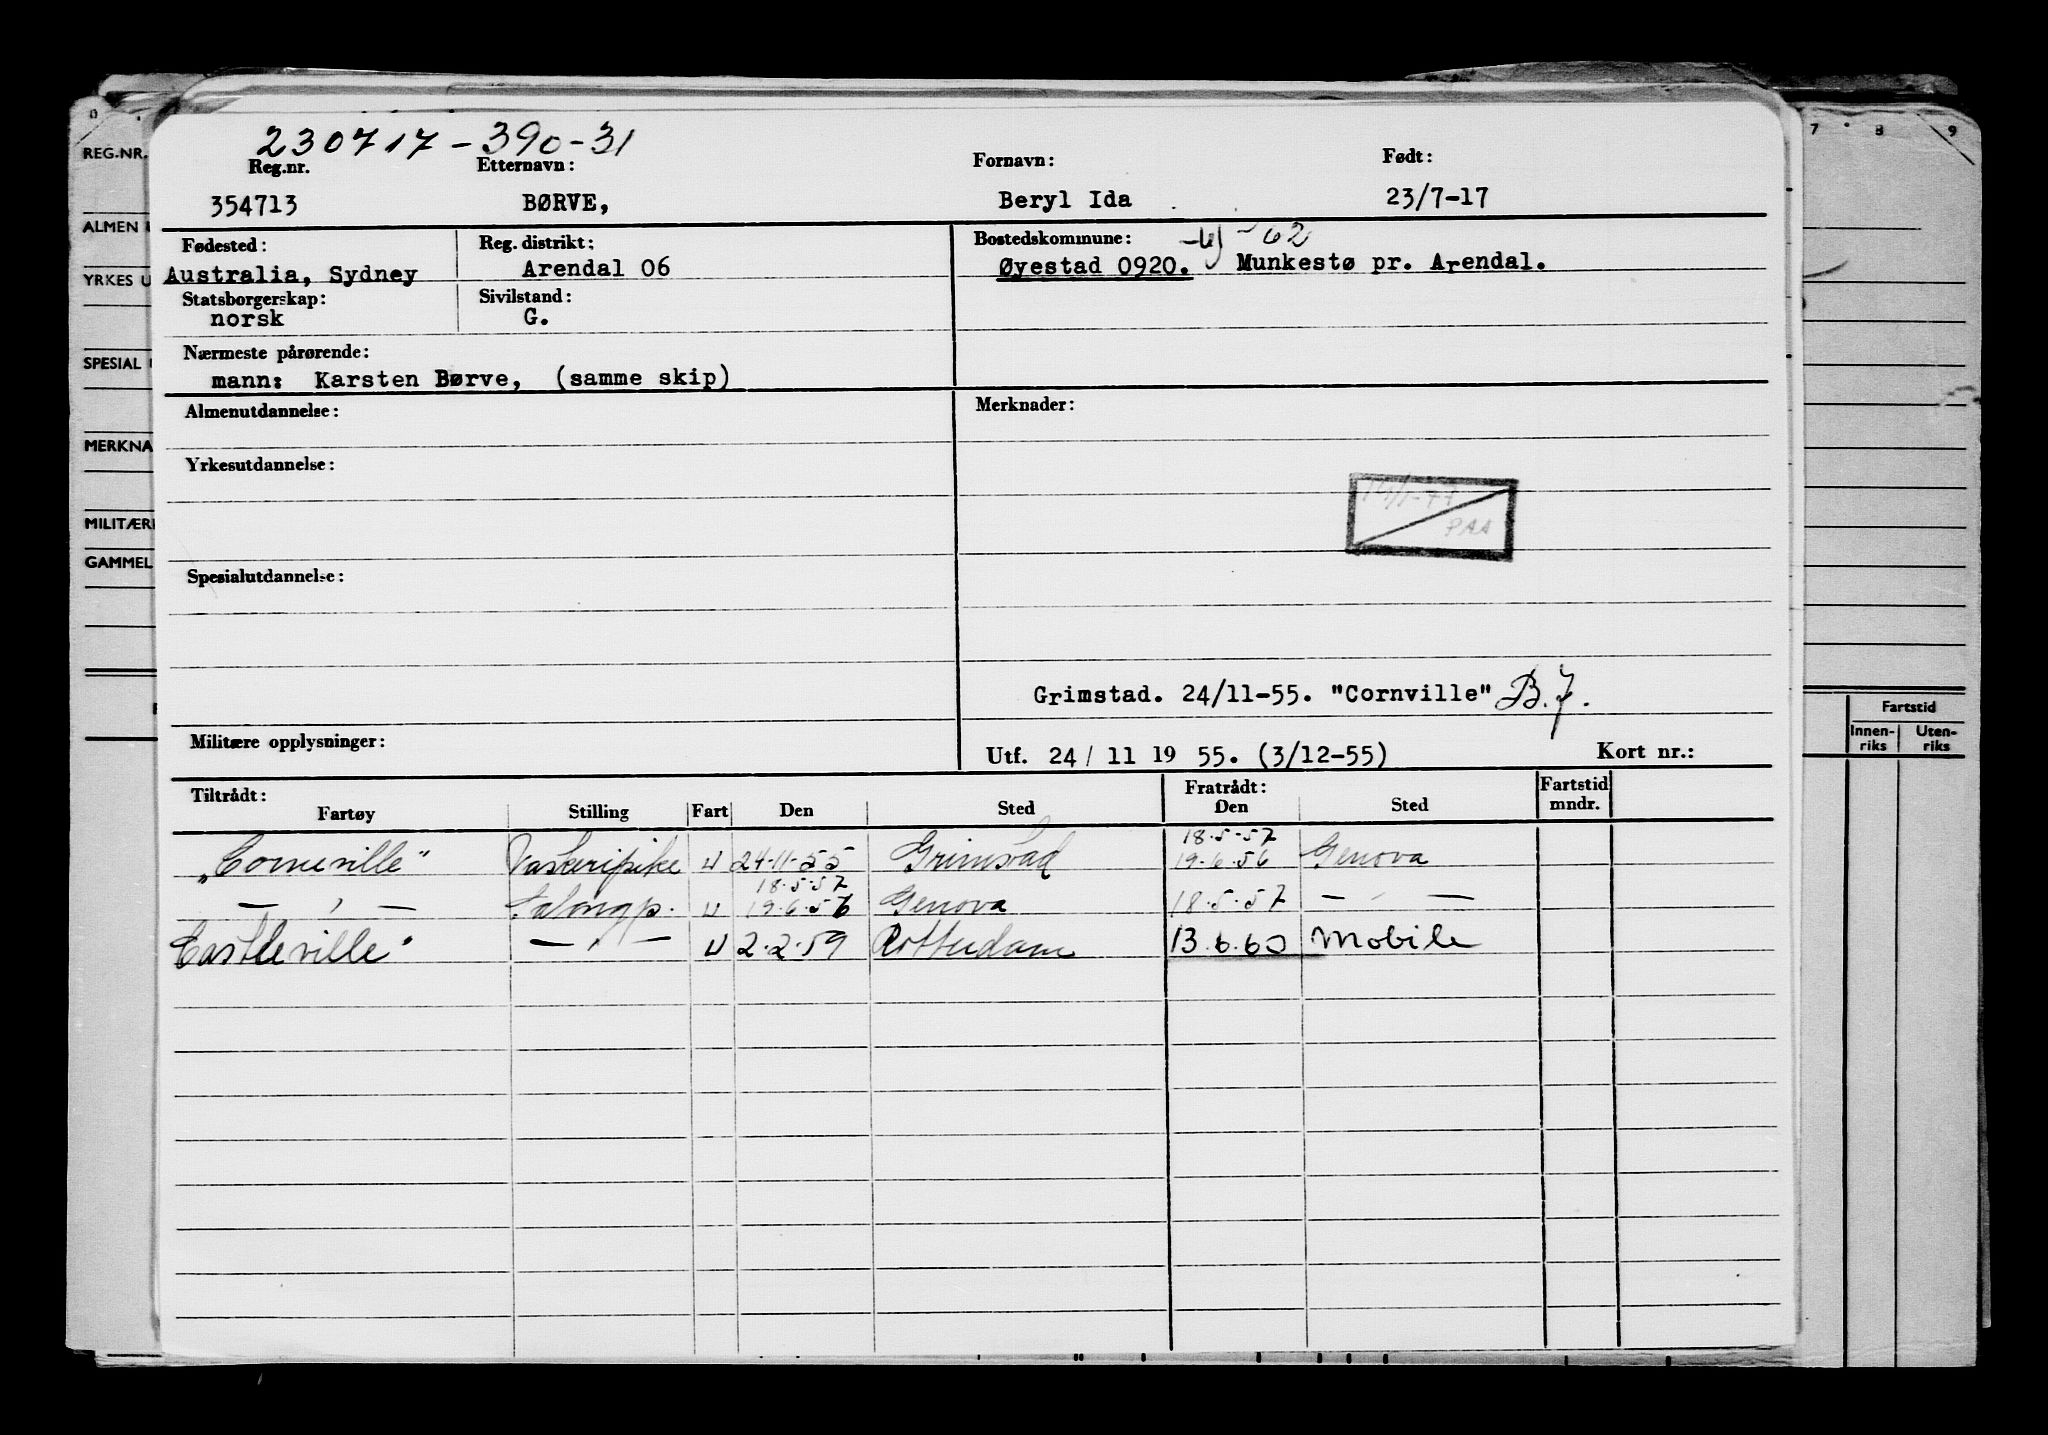 230717-390-31
Reg.nr. Etternavn: Fornavn: Født:
354713 BØRVE, Beryl Ida 23/7-17
Fødested: Reg. distrikt: Bostedskommune: 62
Australia, Sydney Arendal 06 Øyestad 0920. Munkestø pr. Arendal.
Statsborgerskap: Sivilstand:
norsk G.
Nærmeste pårørende:
mann: Karsten Børve, (samme skip)
Almenutdannelse: Merknader:
Yrkesutdannelse:
PAA
Spesialutdannelse:
Grimstad. 24/11-55. "Cornville" B.J.
Militære opplysninger:
Utf. 24/ 11 19 55. (3/12-55) Kort nr.:
Tiltrådt: Fratrådt: Fartstid
Fartøy Stilling Fart Den Sted Den Sted mndr.
18.5-57
„Corneville" Vaskeripike U 24-11-55 Grimstad 19.6.56 Genova
18.5.57
— , — Salongp. U 19.6.56 Genova 18.5.57 — , —
Castleville" — , — U 2.2.59 Rotterdam 13.6.60 Mobile
REG.NR.
ALMEN
YRKES U
SPESIAL
MERKNA
MILITÆR
GAMMEL
7 8 9
Fartstid
Innen-riks Uten-riks